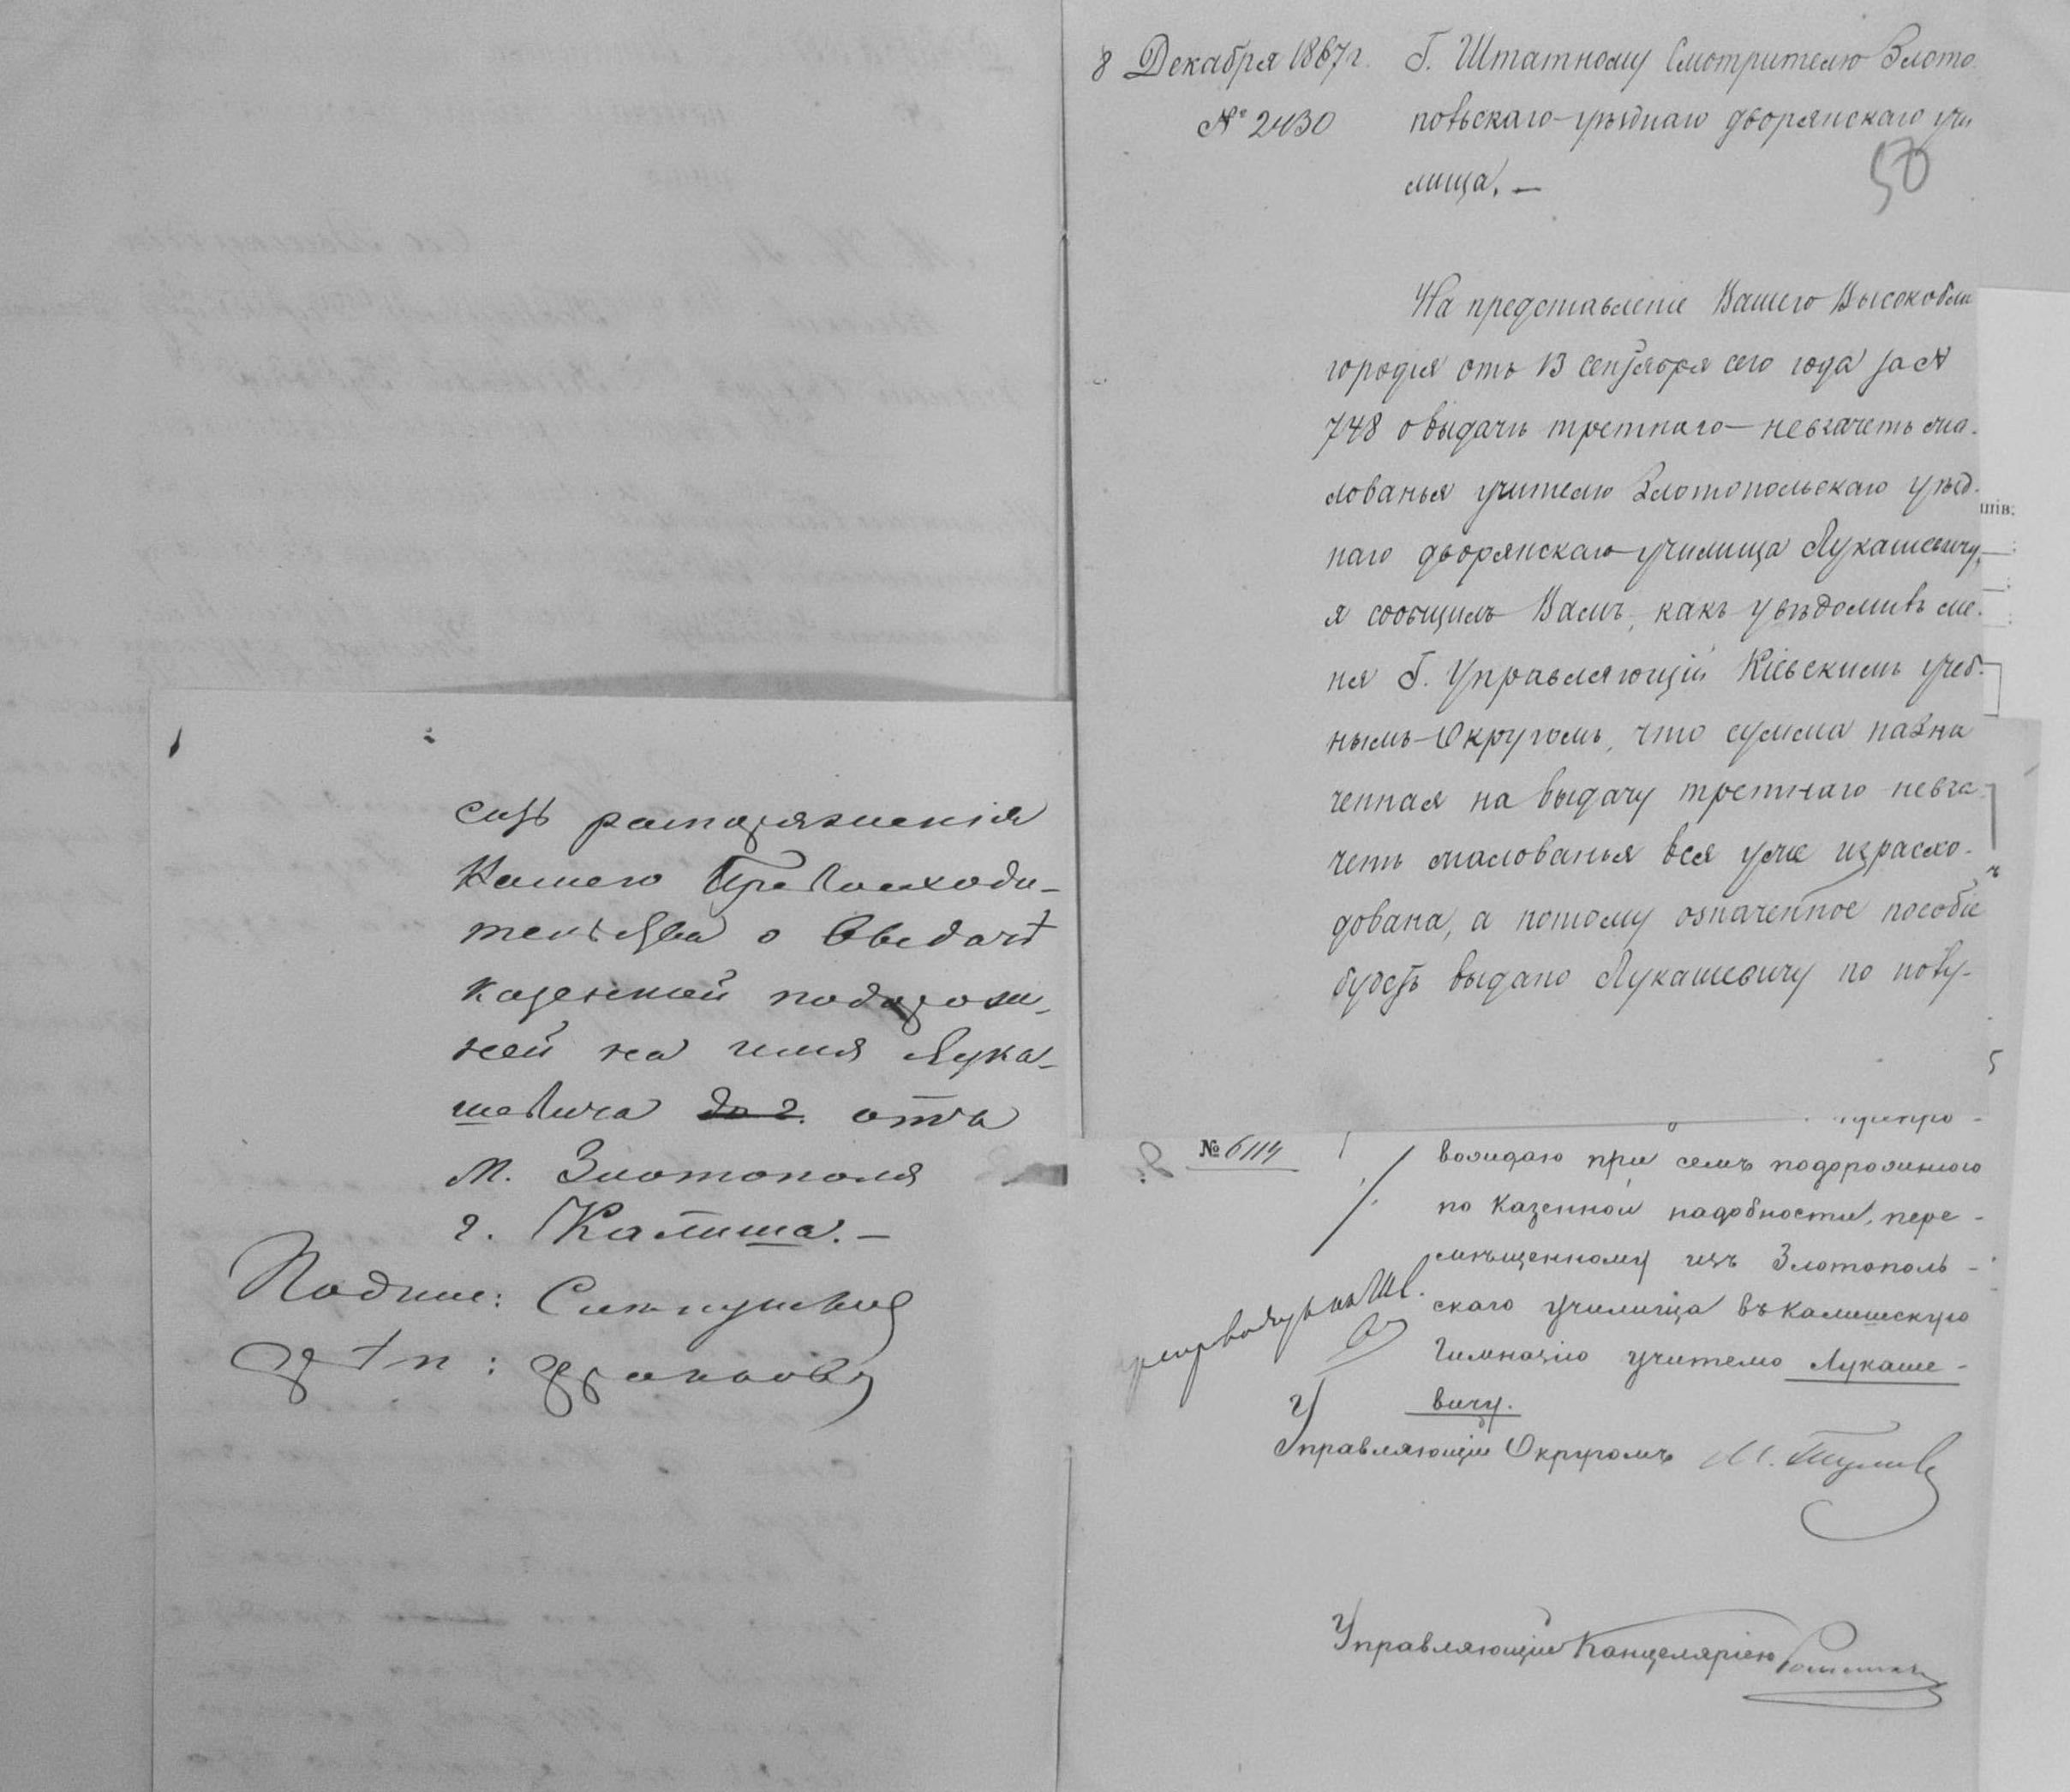 8 Декабря 1867 г.
№ 2430
Г. Штатному Смотрителю Злото
польскаго уѣзднаго дворянскаго учи
лища. —
50
На представленіе Вашего Высокобла
городія отъ 13 сентября сего года за №
748 о выдачѣ третнаго невзачетъ жа-
лованья учителю Злотопольскаго уѣзд-
наго дворянскаго училища Лукашевичу,
я сообщилъ Вамъ, какъ увѣдомивъ ме-
ня Г. Управляющій Кіевскимъ учеб-
нымъ Округомъ, что сумма назна
ченная на выдачу третнаго невза-
четъ жалованья вся уже израсхо-
дована, а потому означенное пособіе
будетъ выдано Лукашевичу по полу-
шів:
сизъ распоряженія
Вашего Превосходи-
тельства о выдачѣ
казенной подорож-
ной на имя Лука-
шевича до г. отъ
м. Злотополя
г. Калиша. —
Подпис:
№ 6114
препро-
вождаю при семъ подорожную
по казенной надобности, пере-
мѣщенному изъ Злотополь-
скаго училища въ Калишскую
Гимназію учителю Лукаше-
вичу.
Управляющій Округомъ М.
Управляющій Канцеляріею